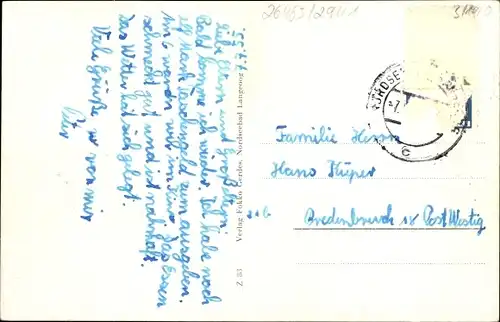 26463/2941
7.7.55
Liebe Eltern und Großeltern
Bald komme ich wieder. Ich habe noch
elf Mark Taschengeld zum ausgeben.
Um 6 waren wir im Das Essen
schmeckt gut und ist nahrhaft.
Das Wetter hat sich gelegt.
Viele Grüße von mir
Verlag Fokko Gerdes, Nordseebad Langeoog
Z 33
NORDSEE
Familie Herrn
Hano Küper
Bredenbruch ix Post Westig